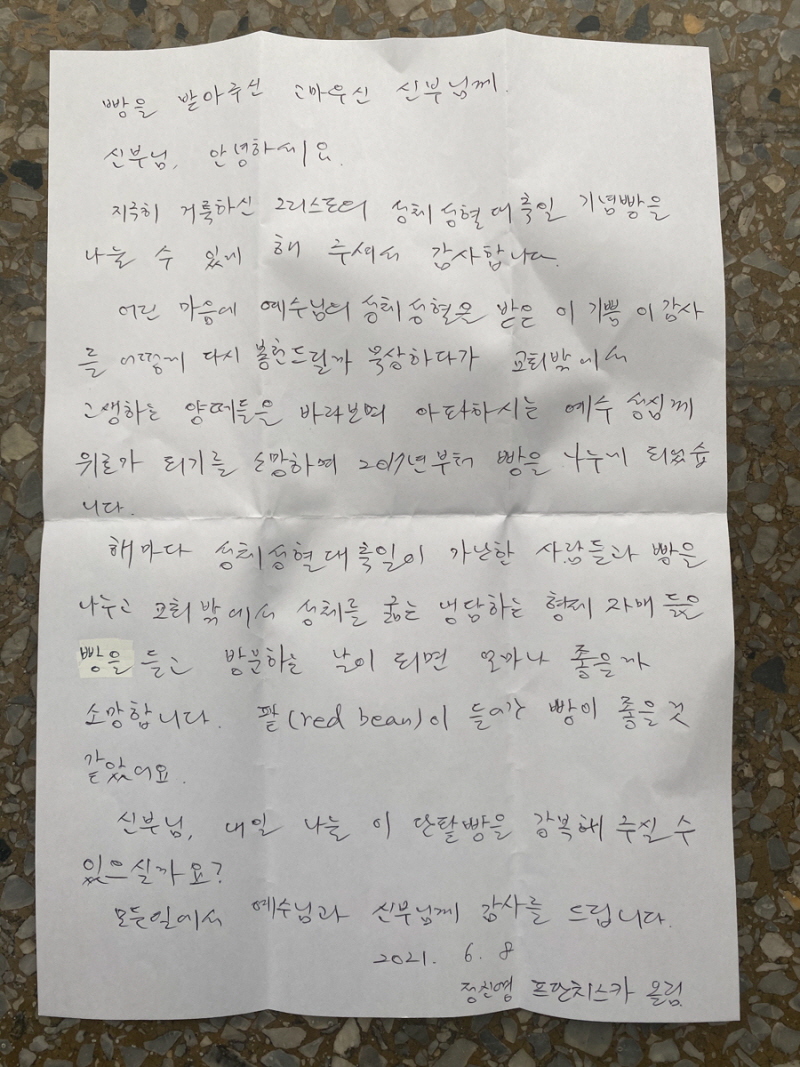 빵을 받아주신 고마우신 신부님께.
신부님, 안녕하세요.
지극히 거룩하신 그리스도의 성체성혈대축일 기념빵을
나눌 수 있게 해 주셔서 감사합니다.
어린 마음에 예수님의 성체성혈을 받은 이 기쁨 이 감사
를 어떻게 다시 봉헌드릴까 묵상하다가 교회밖에서
고생하는 양떼들을 바라보며 아파하시는 예수 성심께
위로가 되기를 소망하며 2017년부터 빵을 나누게 되었습
니다.
해마다 성체성혈대축일이 가난한 사람들과 빵을
나누고 교회 밖에서 성체를 굶는 냉담하는 형제 자매들은
빵을 들고 방문하는 날이 되면 얼마나 좋을까
소망합니다. 팥(red bean)이 들어간 빵이 좋을것
같았어요.
신부님, 내일 나눌 이 단팥빵을 강복해 주실 수
있으실까요?
모든일에서 예수님과 신부님께 감사를 드립니다.
2021. 6. 8
프란치스카 올림.